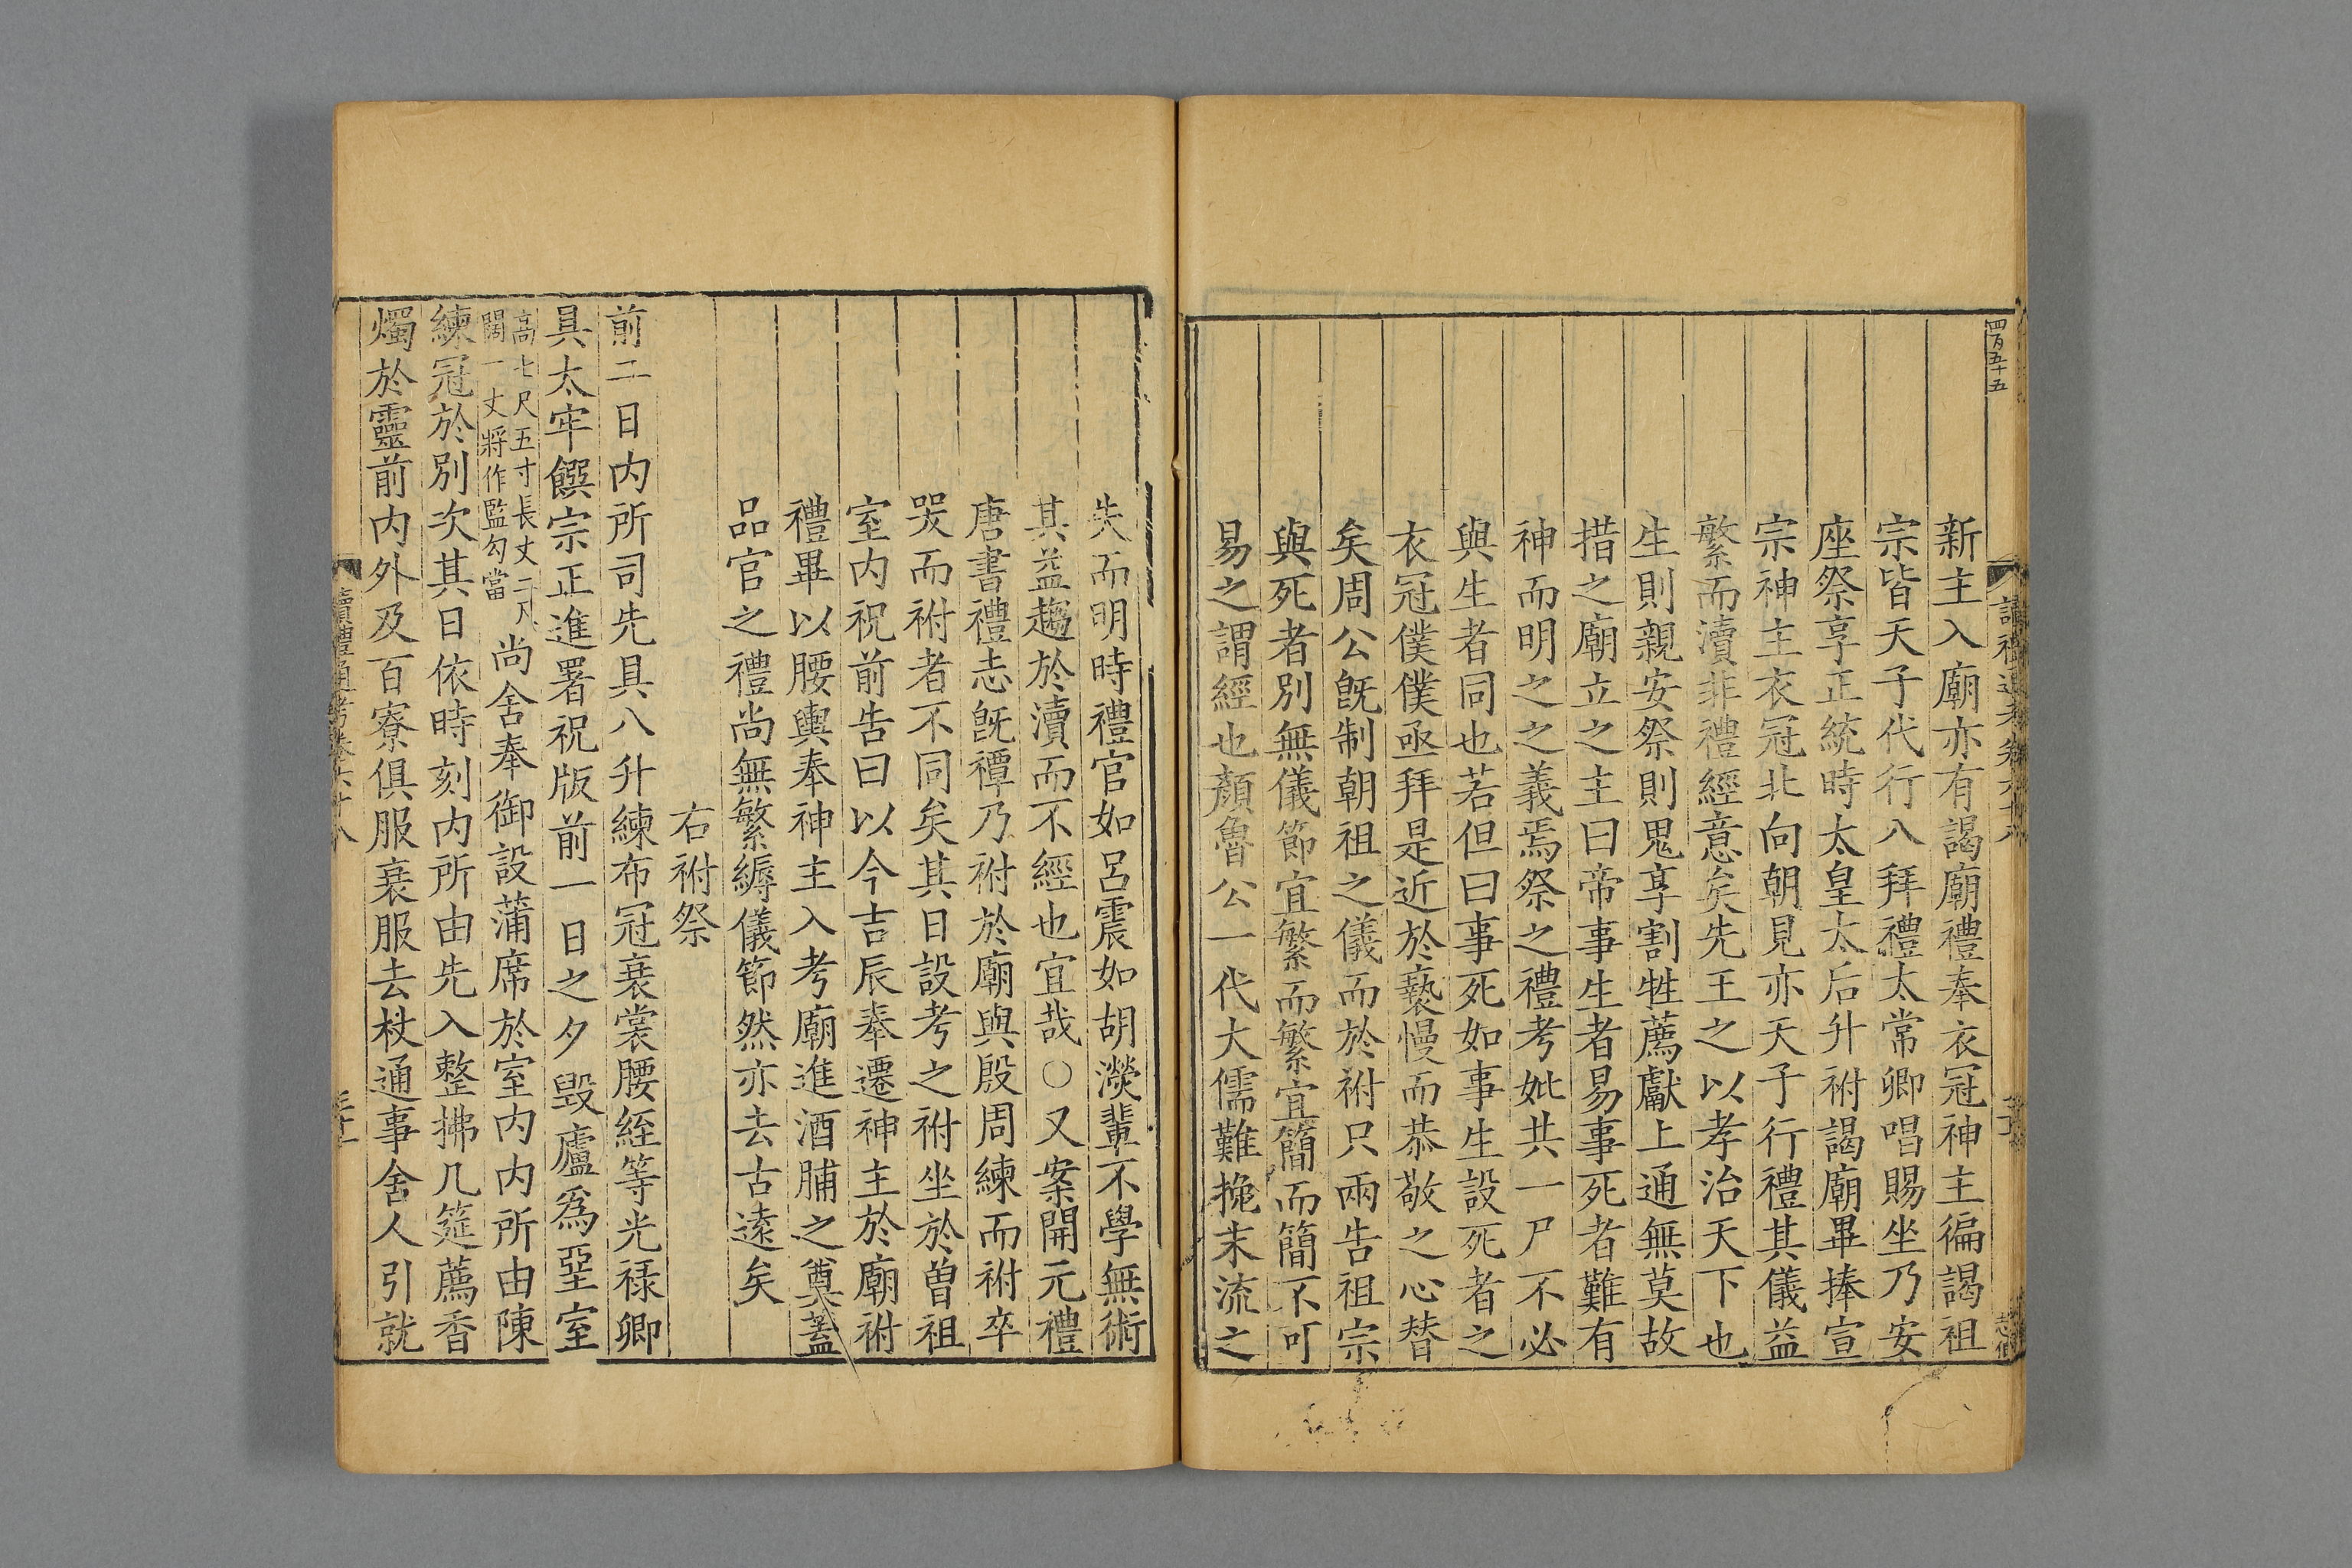 四百五十五
新主入廟亦有謁廟禮奉衣冠神主徧謁祖
宗皆天子代行八拜禮太常卿唱賜坐乃安
座祭享正統時太皇太后升祔謁廟畢捧宣
宗神主衣冠北向朝見亦天子行禮其儀益
繁而瀆非禮經意矣先王之以孝治天下也
生則親安祭則鬼享割牲薦獻上通無莫故
措之廟立之主曰帝事生者易事死者難有
神而明之之義焉祭之禮考妣共一尸不必
與生者同也若但曰事死如事生設死者之
衣冠僕僕亟拜是近於褻慢而恭敬之心替
矣周公旣制朝祖之儀而於祔只兩告祖宗
與死者別無儀節宜繁而繁宜簡而簡不可
易之謂經也顏魯公一代大儒難挽末流之
失而明時禮官如呂震如胡濙輩不學無術
其益趨於瀆而不經也宜哉○又案開元禮
唐書禮志旣禫乃祔於廟與殷周練而祔卒
哭而祔者不同矣其日設考之祔坐於曾祖
室内祝前告曰以今吉辰奉遷神主於廟祔
禮畢以腰輿奉神主入考廟進酒脯之奠蓋
品官之禮尚無繁縟儀節然亦去古遠矣
右祔祭
前二日内所司先具八升練布冠衰裳腰絰等光祿卿
具太牢饌宗正進署祝版前一日之夕毀廬爲堊室
高七尺五寸長丈二尺
闊一丈將作監勾當
尚舍奉御設蒲席於室内内所由陳
練冠於別次其日依時刻内所由先入整拂几筵薦香
燭於靈前内外及百寮俱服衰服去杖通事舍人引就
讀禮通考卷六十八